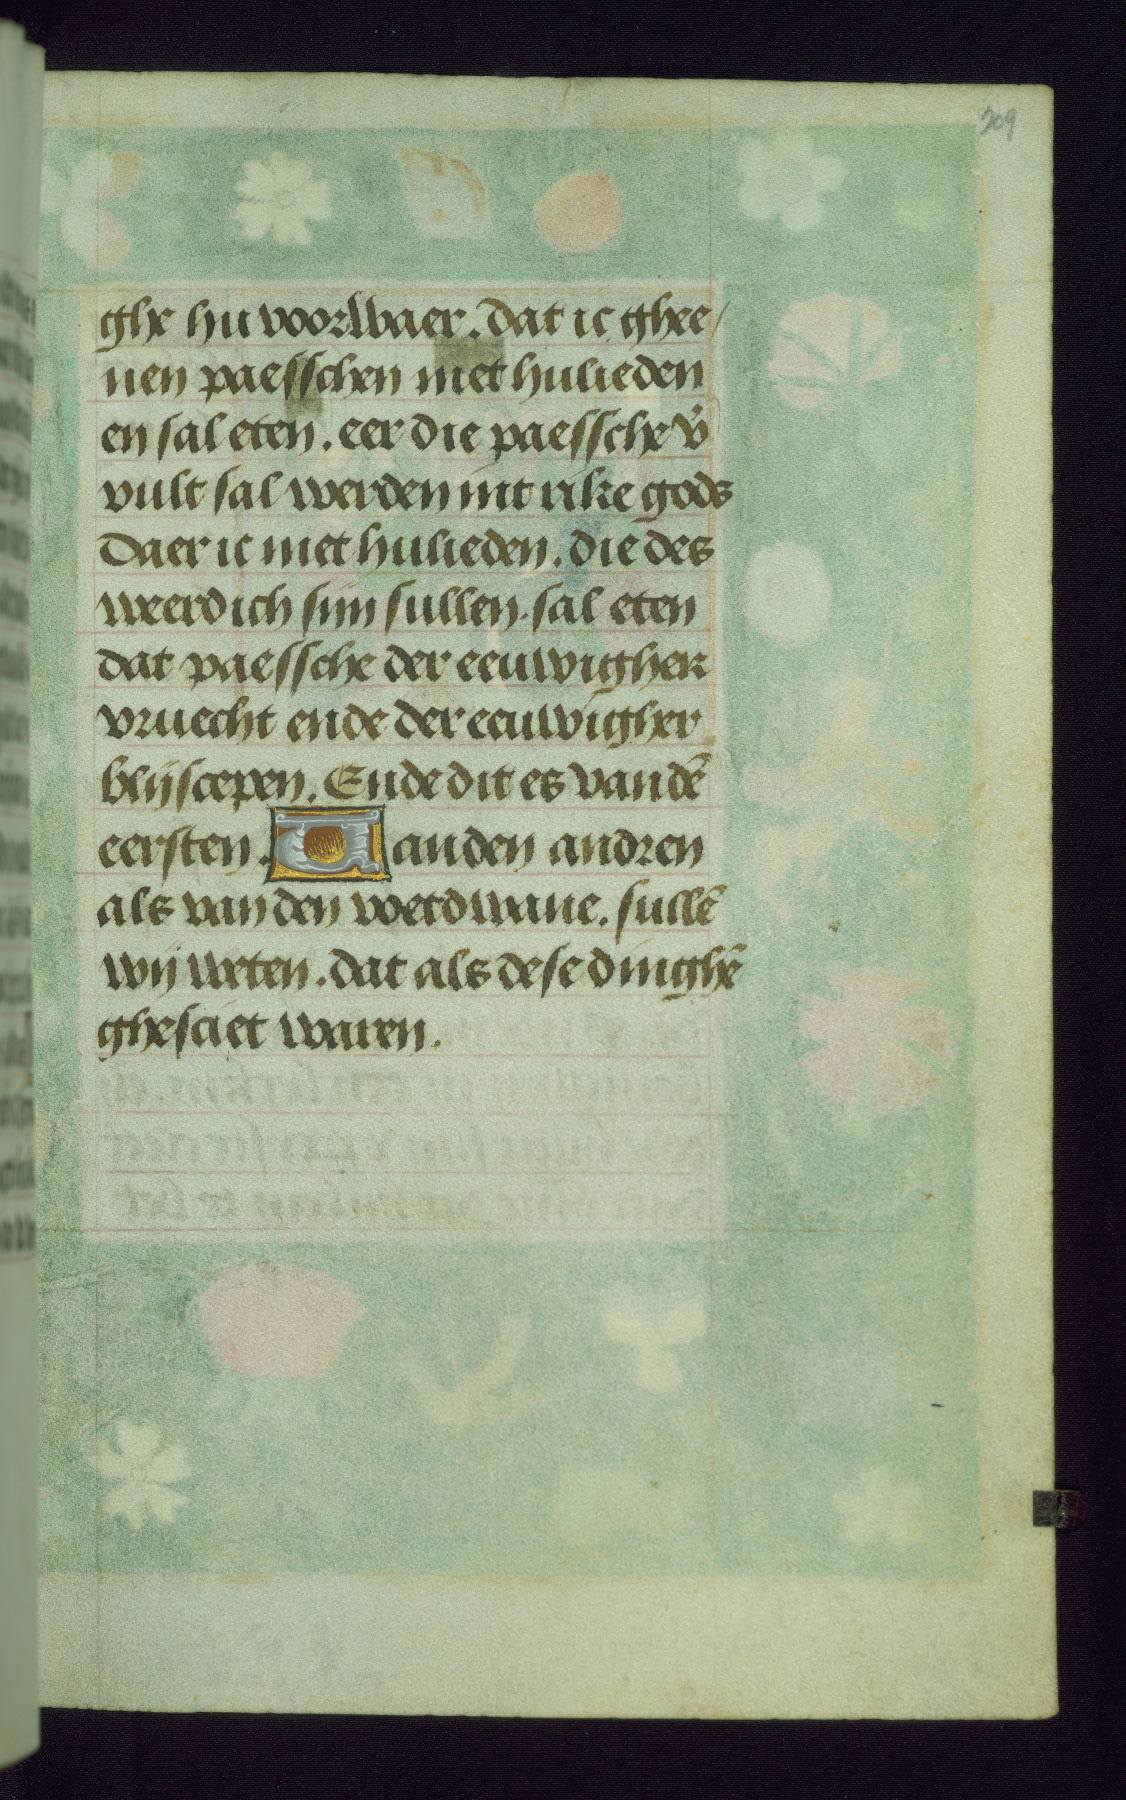 209
ghe hu voorwaer. dat ic ghee/
nen paesschen met hulieden
en sal eten. eer die paessche v̄
vult sal werden int rike gods
Daer ic met hulieden. die des
weerdich sijn sullen. sal eten
dat paessche der eeuwigher
vruecht ende der eeuwigher
blijscepen. Ende dit es vandē
eersten. Vanden andren
als vanden voetdwane. sullē
wij weten. dat als dese dinghē
ghesciet waren.